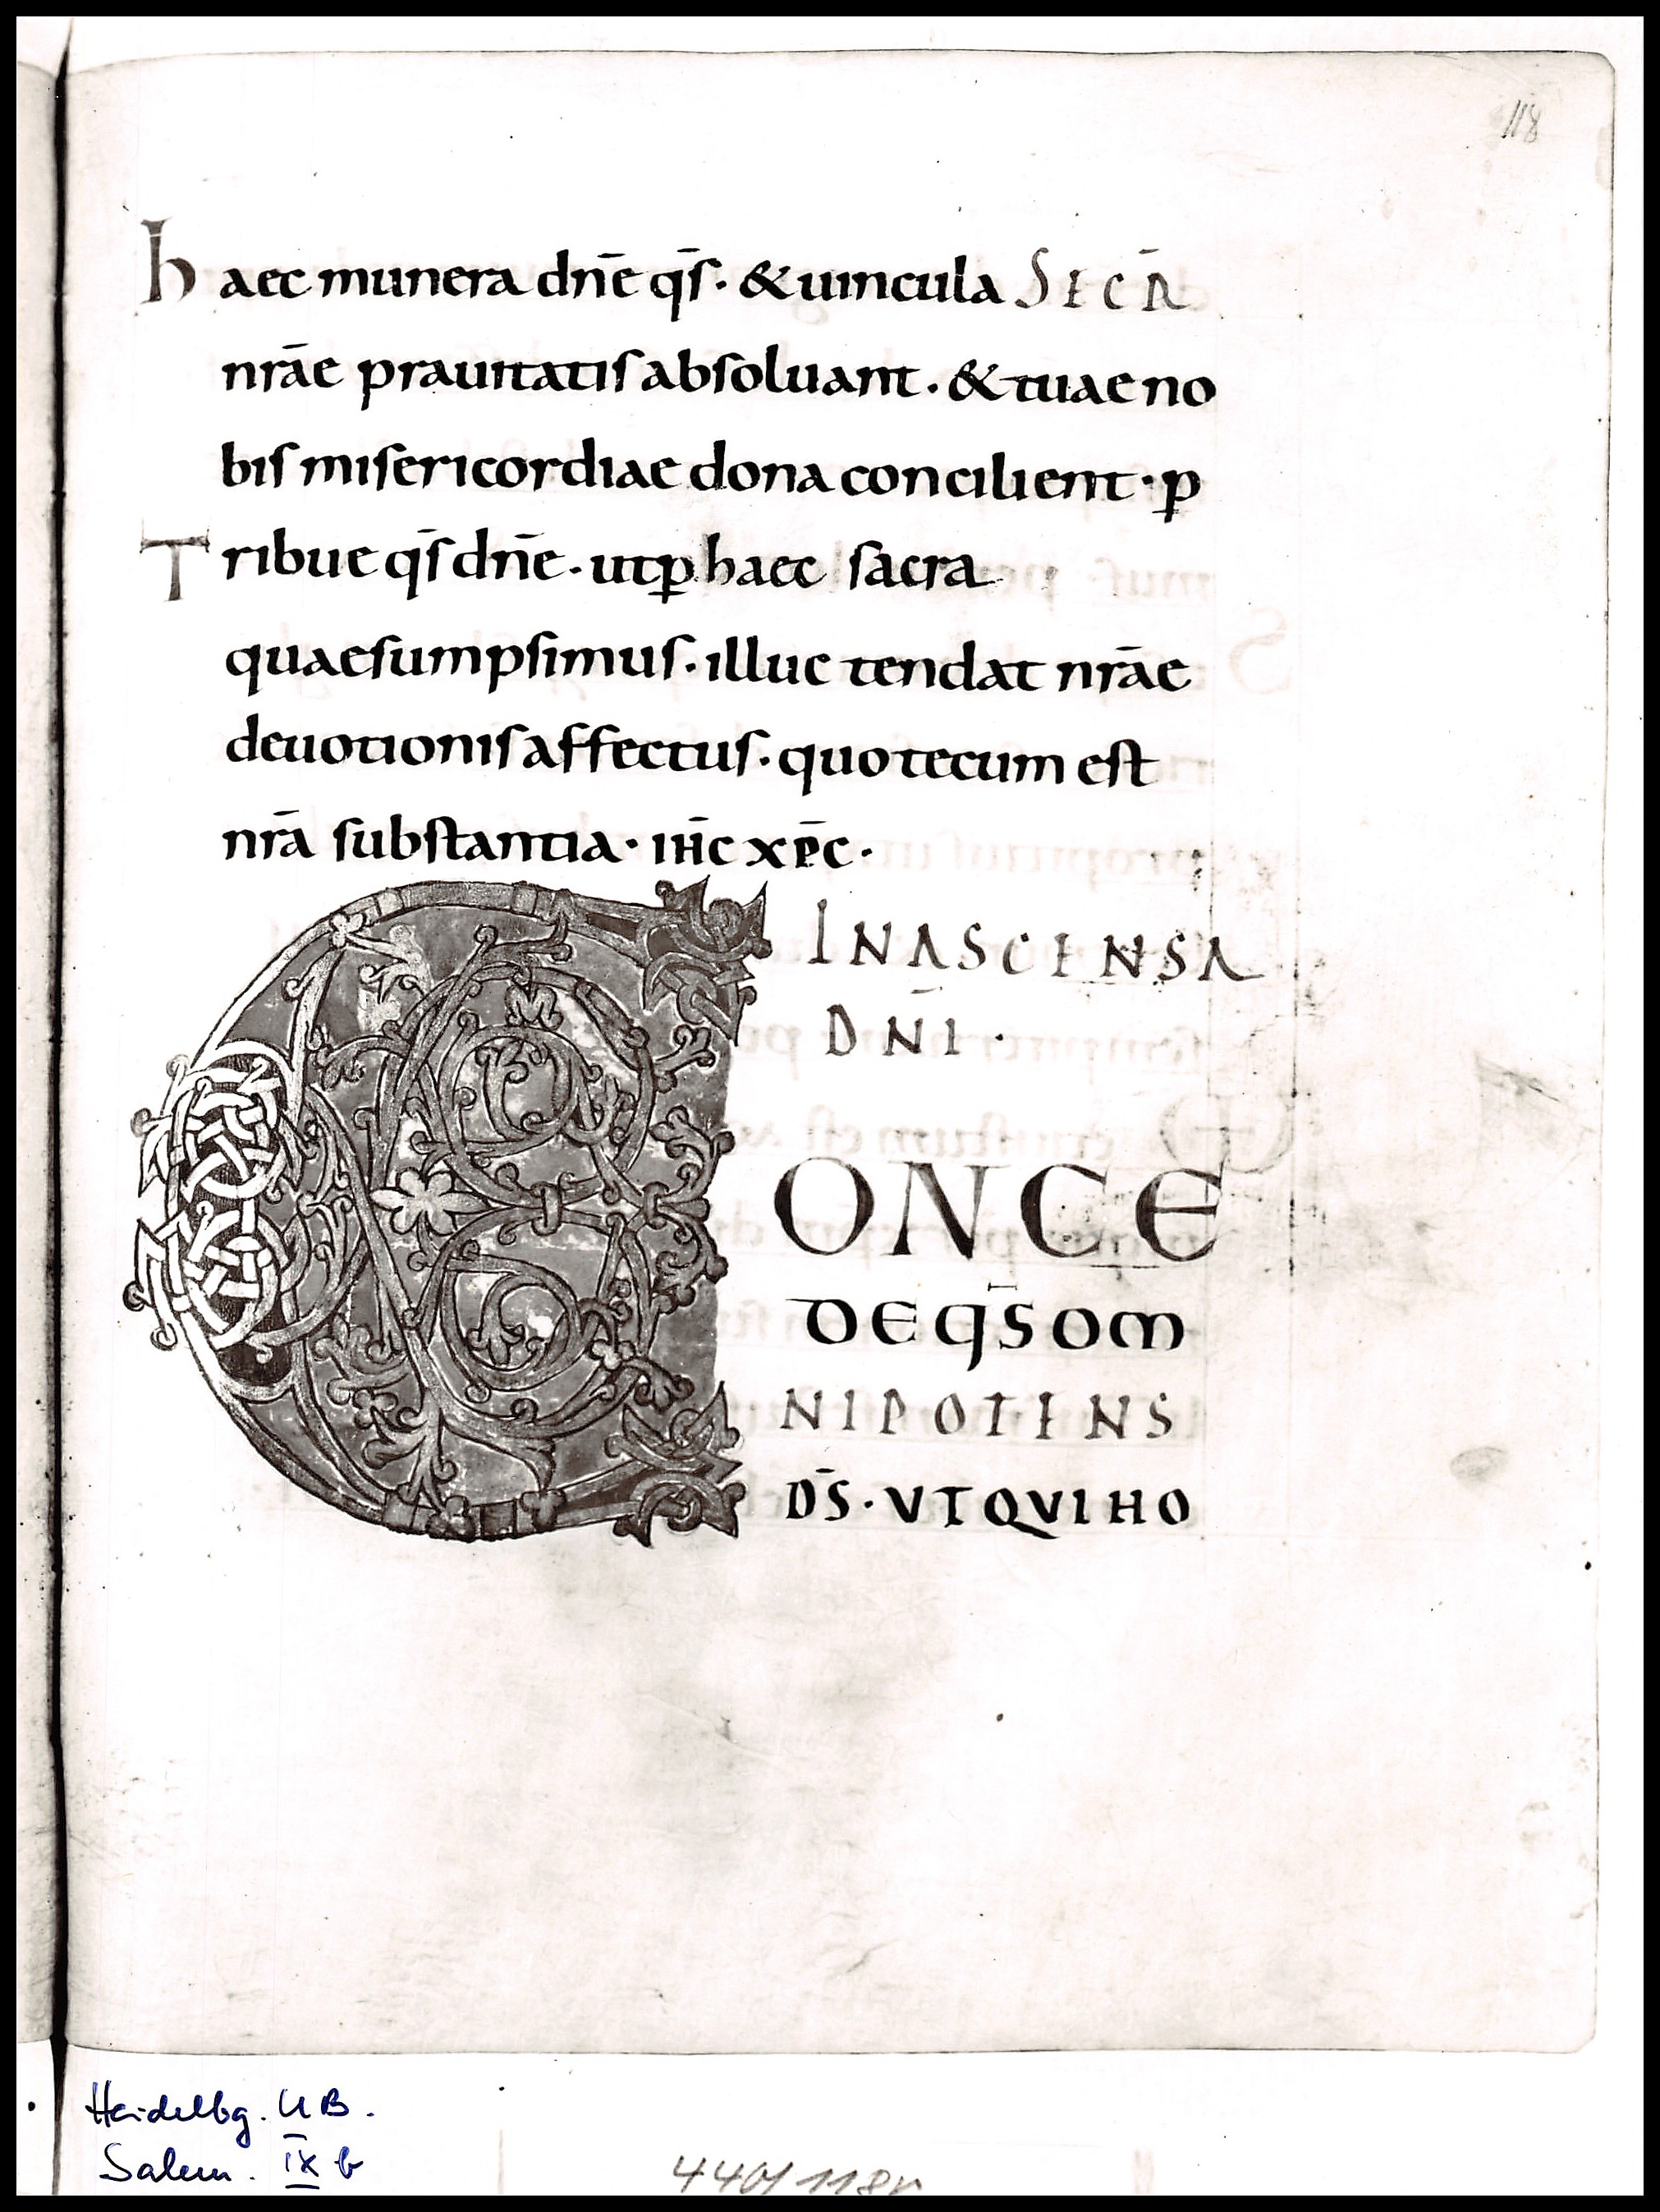 118
haec munera dn̄e qs̄· & uincula SECR̄
nrāe prauitatis absoluant· & tuae no
bis misericordiae dona concilient· p̲
Tribue qs̄ dn̄e· ut p̲ haec sacra
quae sumpsimus· illuc tendat nrāe
deuotionis affectus· quo tecum est
nrā substantia· ih̄c xp̄c·
IN ASCENSA
DN̄I·
CONCE
DE QS̄ OM
NIPOTENS
DS̄· UT QUI HO
Heidelbg. UB.
Salem. IX b
440/118r